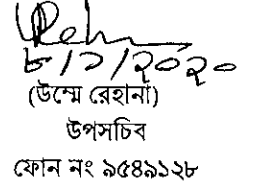 ৮/১/২০২০
(উম্মে রেহানা)
উপসচিব
ফোন নং ৯৫৪৯১২৮